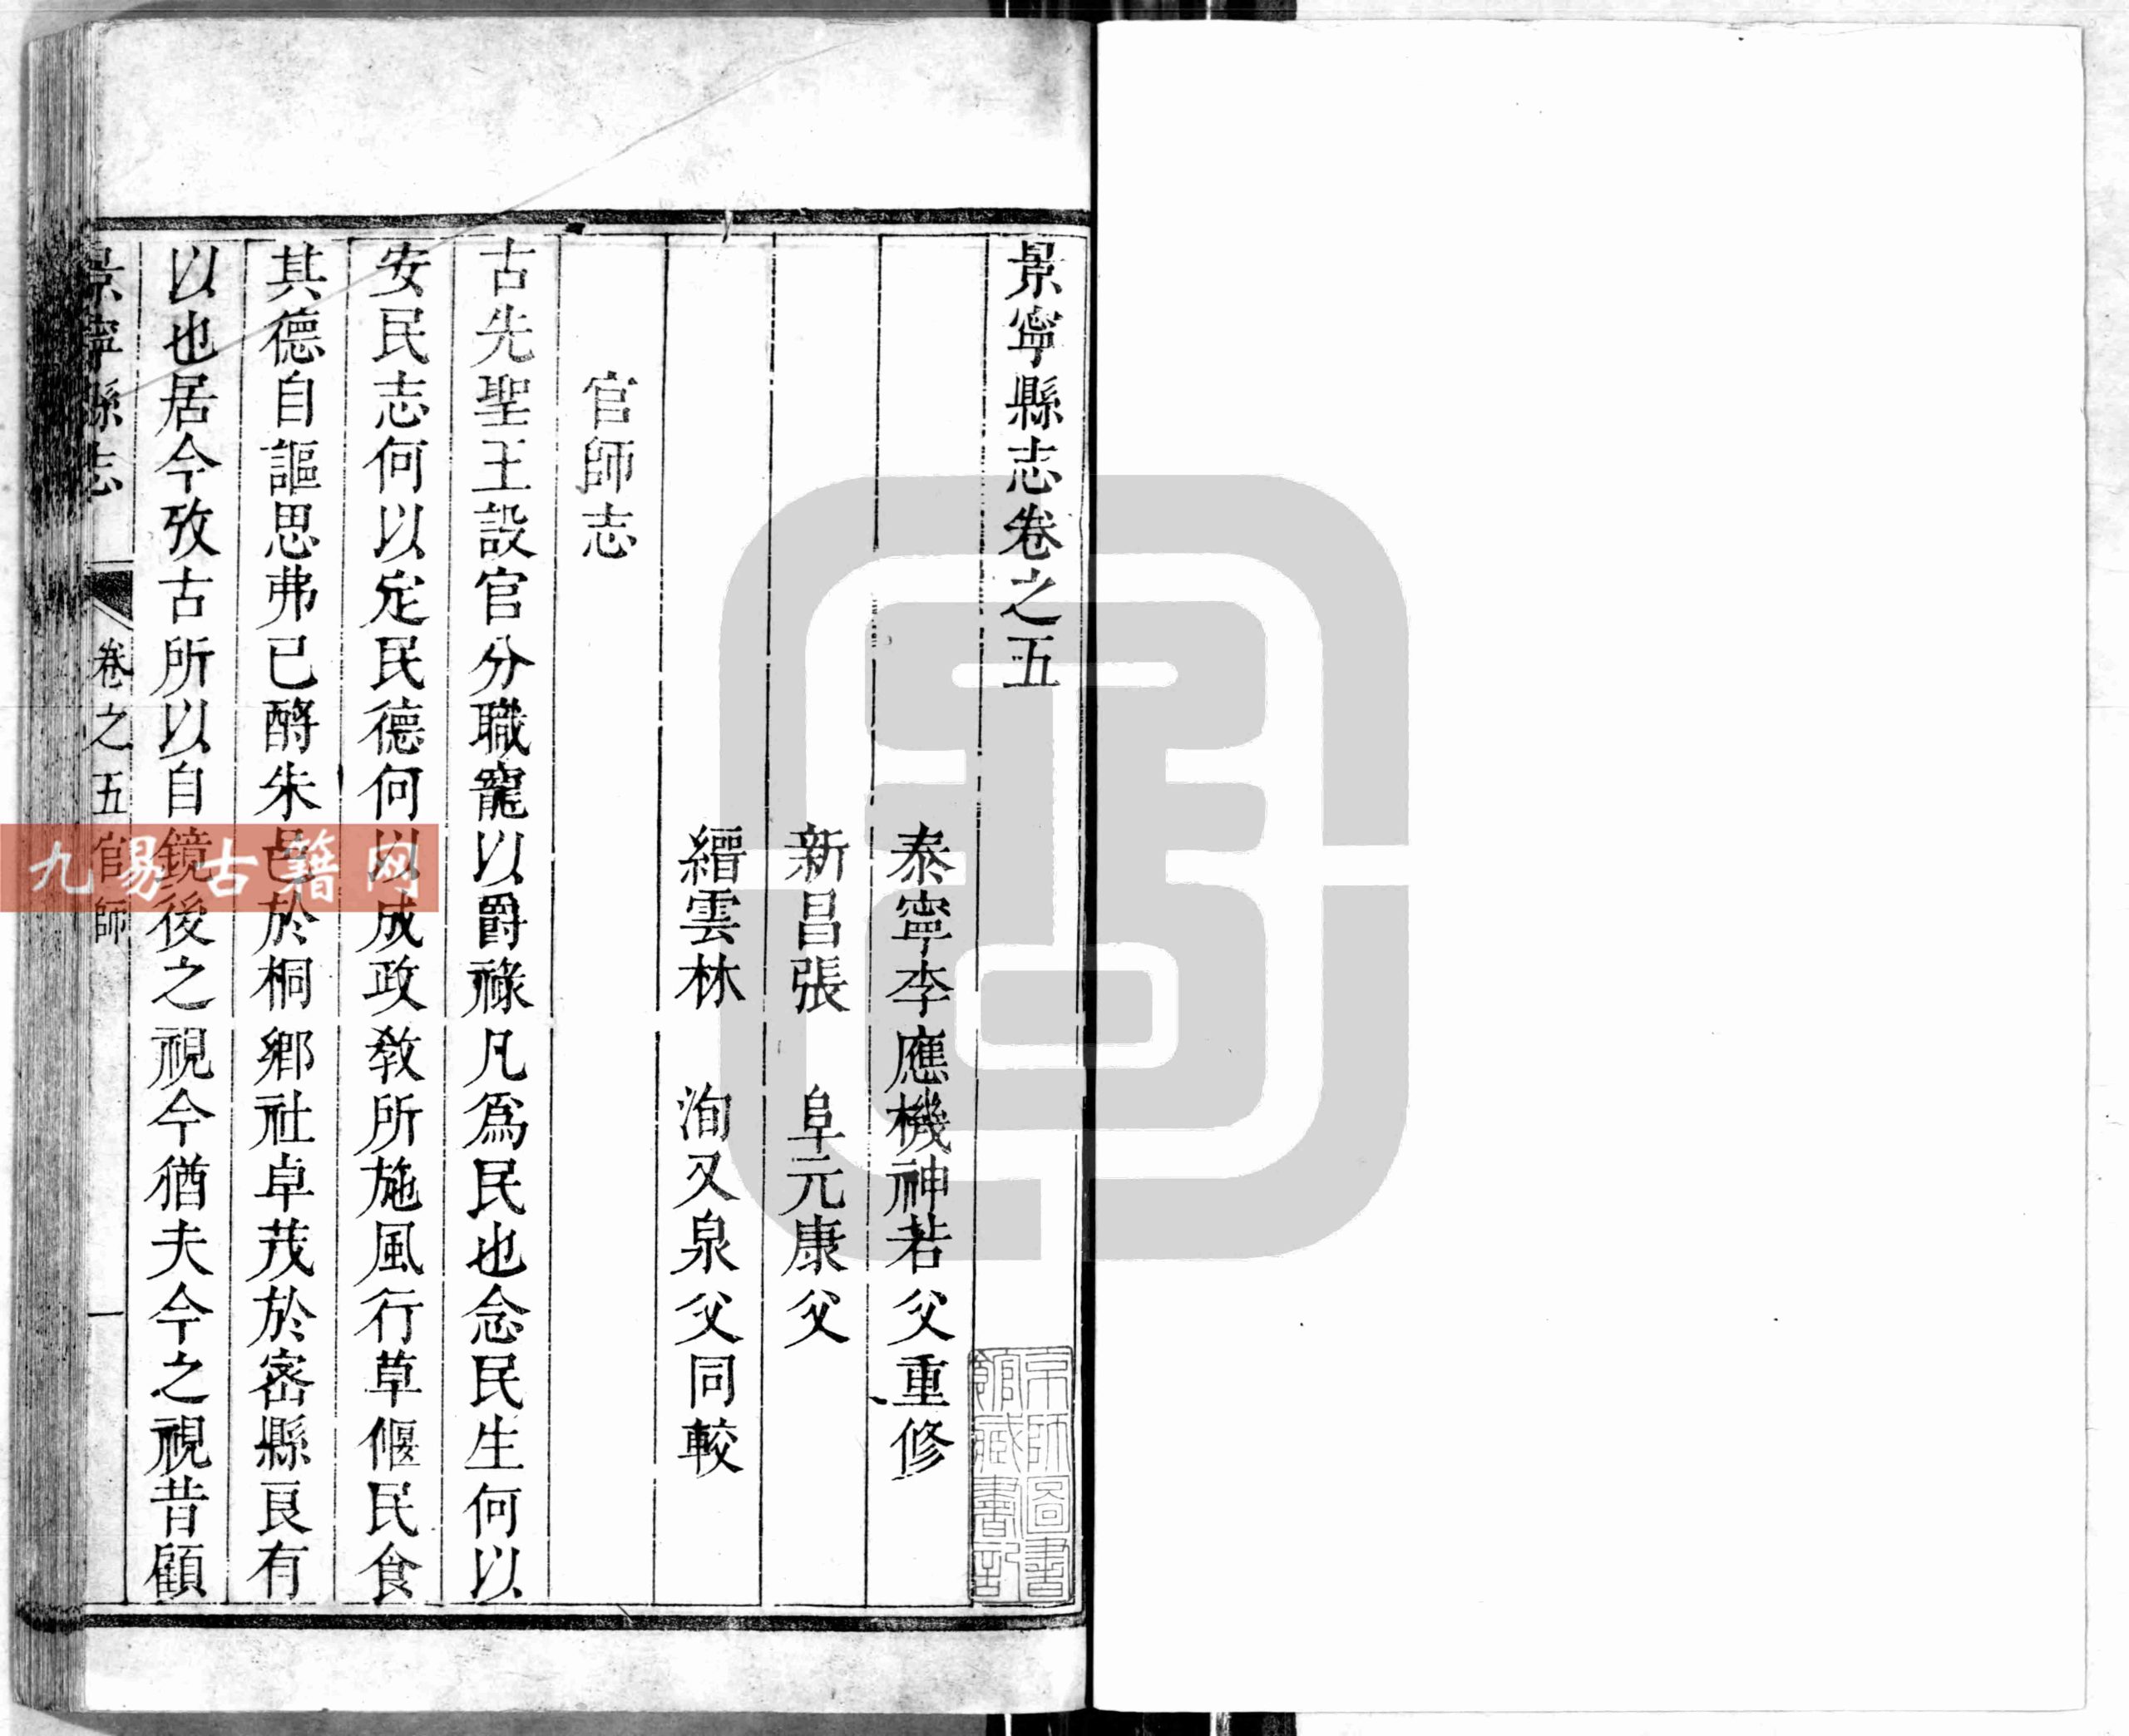 景寧縣志卷之五
泰寧李應機神若父重修
新昌張　阜元康父
縉雲林　洵又泉父同較
官師志
古先聖王設官分職寵以爵祿凡爲民也念民生何以
安民志何以定民德何以成政教所施風行草偃民食
其德自謳思弗已酹朱邑於桐鄉社卓茂於密縣良有
以也居今攷古所以自鏡後之視今猶夫今之視昔顧
景寧縣志　卷之五官師　一
京師圖書
館藏書記
九易古籍网